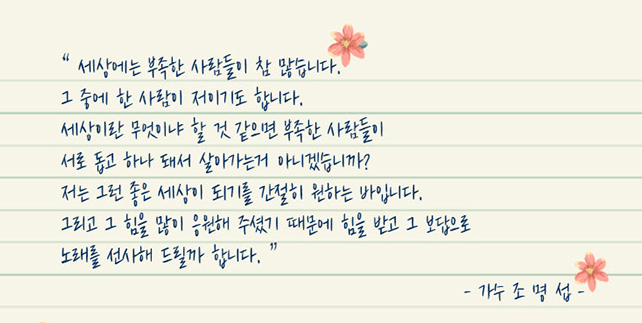 “ 세상에는 부족한 사람들이 참 많습니다.
그 중에 한 사람이 저이기도 합니다.
세상이란 무엇이냐 할 것 같으면 부족한 사람들이
서로 돕고 하나 돼서 살아가는거 아니겠습니까?
저는 그런 좋은 세상이 되기를 간절히 원하는 바입니다.
그리고 그 힘을 많이 응원해 주셨기 때문에 힘을 받고 그 보답으로
노래를 선사해 드릴까 합니다. ”
- 가수 조 명 섭 -